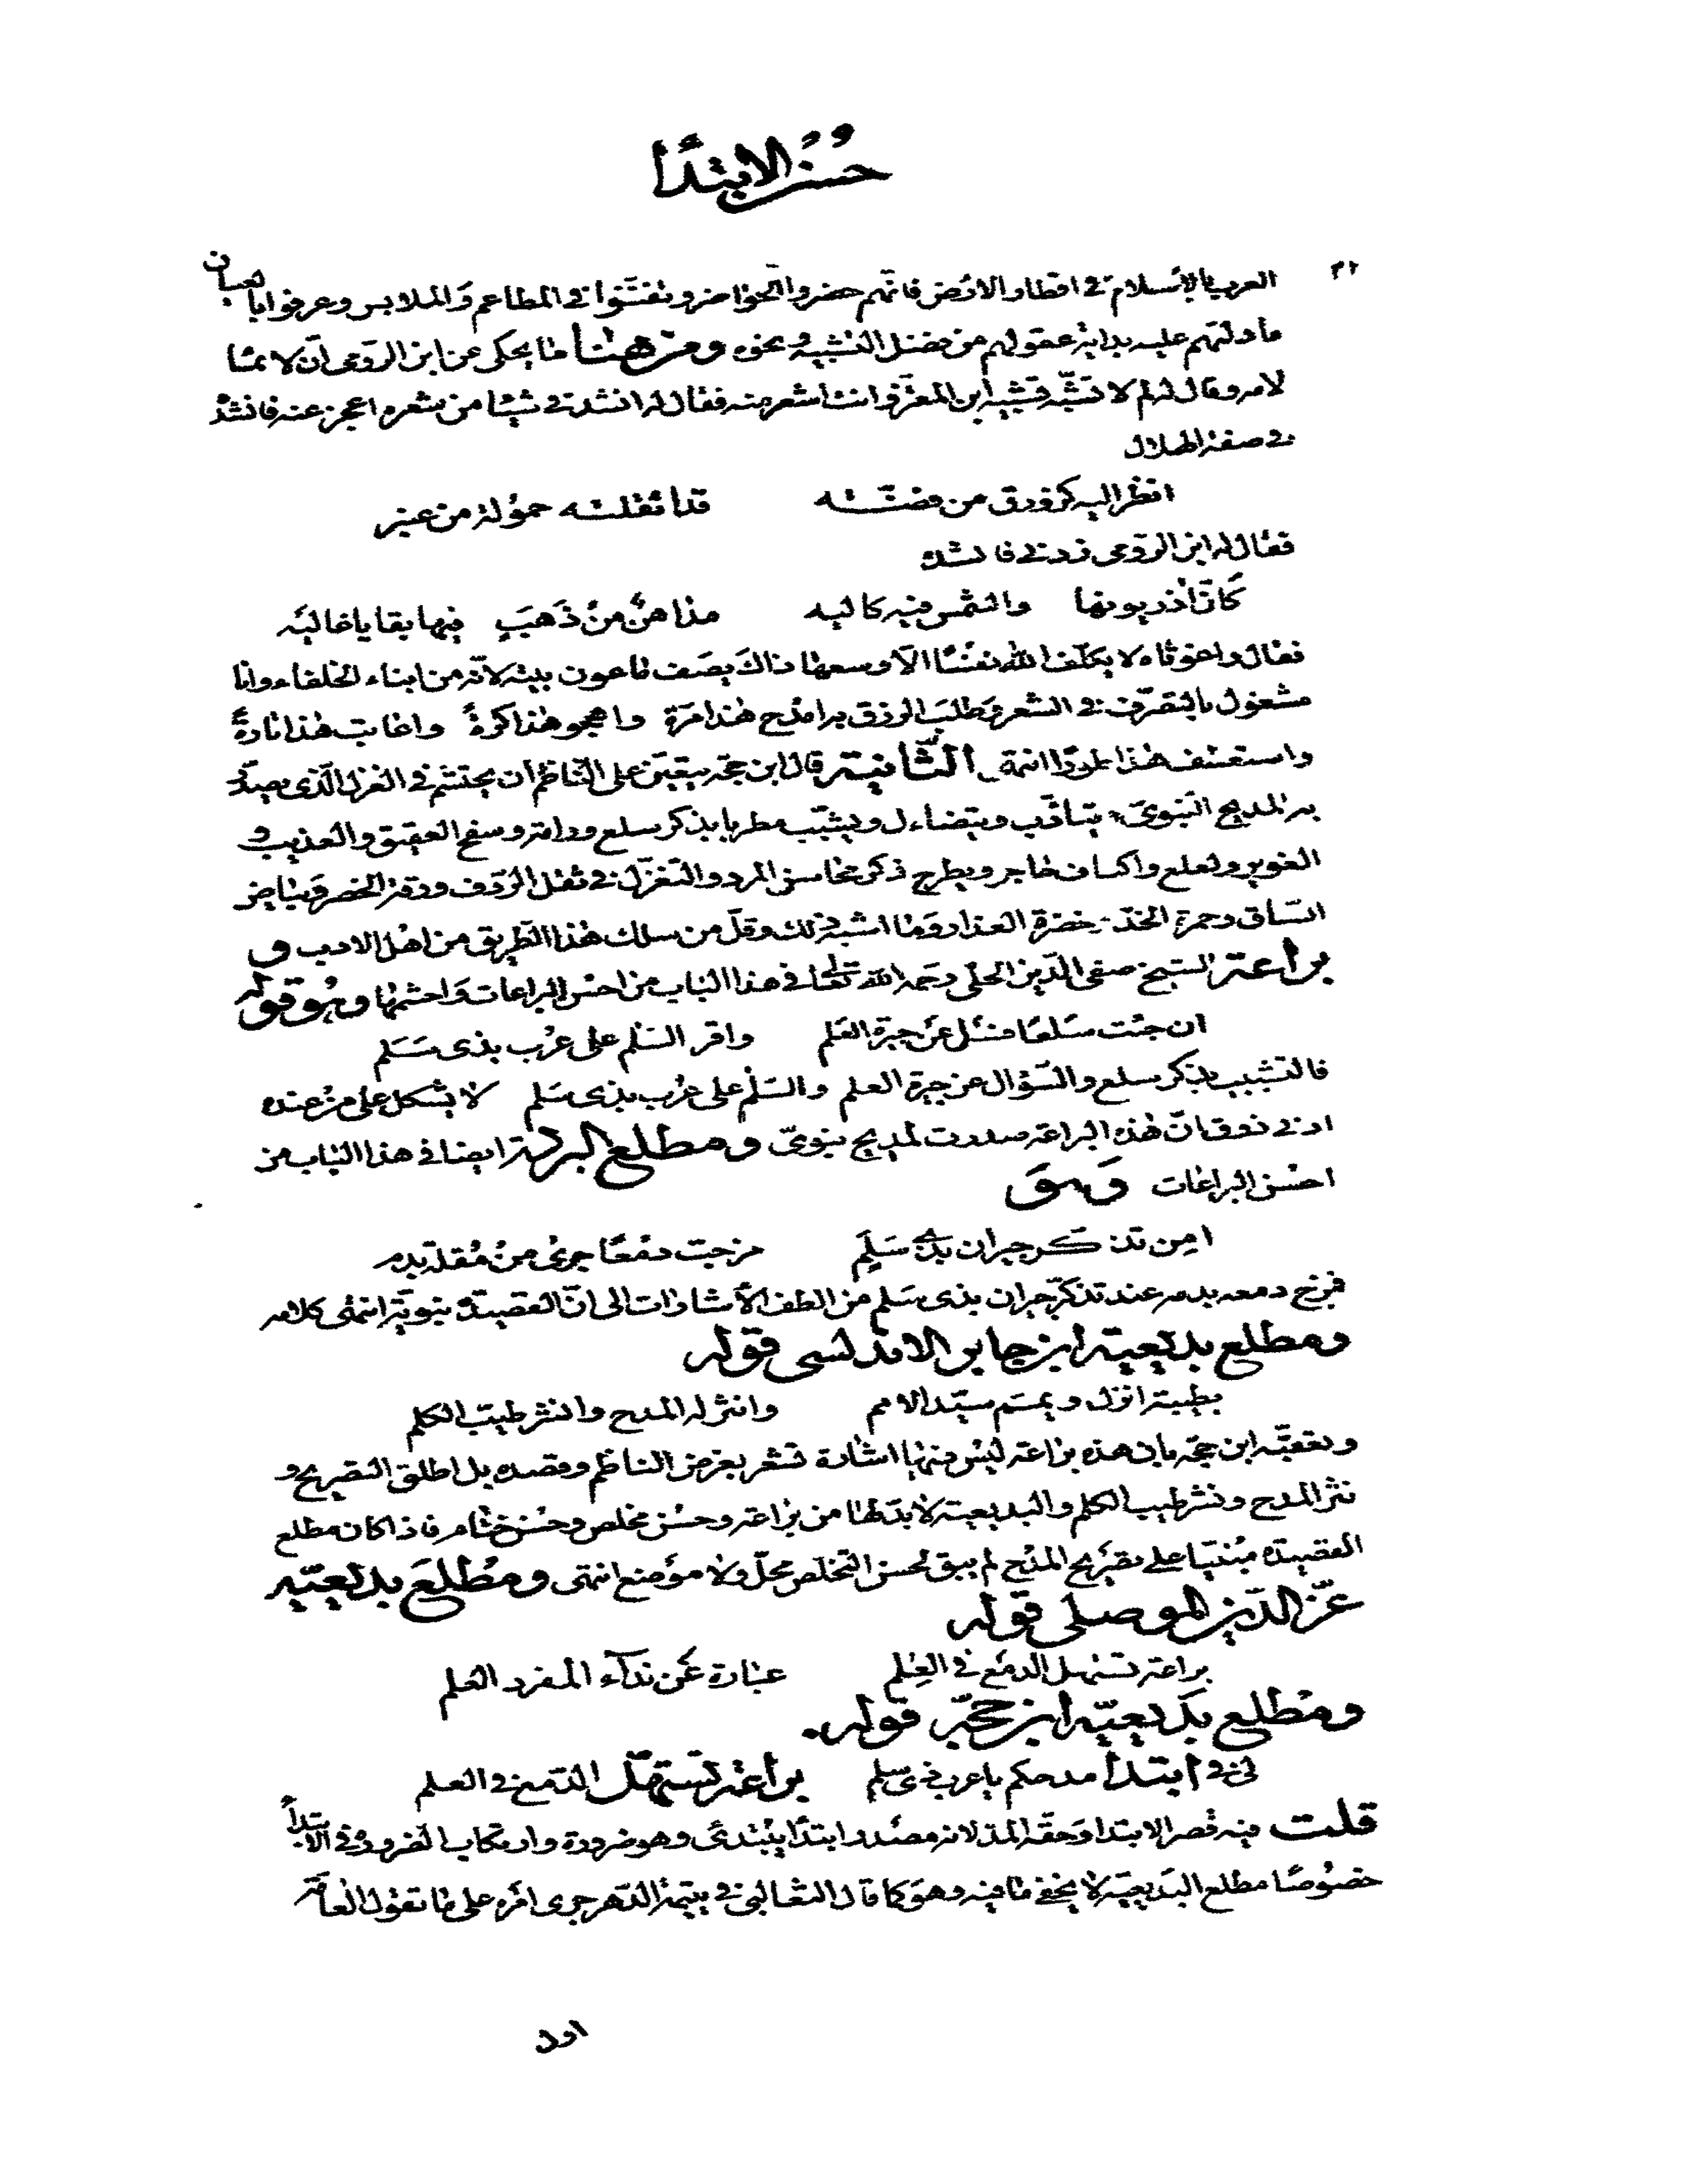 حُسْنُ الابتدَأ
٣١
العرب بالإسلام في اقطار الارض فانّهم حضروا الحواضر وتفنّنوا في المطاعم والملابس وعرفوا بالعيان
ما دلتهم عليه بداية عقولهم من فضل التشبيه ونحوه ومن هنا ما يحكى عن ابن الرّومى انّ لائما
لامه وقال له لم لا تشبّه تشبيه ابن المعتز وانت اشعر منه فقال له انشدني شيئا من شعره اعجز عنه فانشد
في صفة الهلال
انظر اليه كزورق من فضّة قد اثقلته حمولة من عنبر
فقال له ابن الرّومى زدني فانشد
كَانّ آذريونها والشّمس فيه كاليه مداهنٌ مِن ذَهَبٍ فيها بقايا غاليَه
فقال واغوثاه لا يكلّف الله نفسًا الّا وسعها ذاكَ يصَف ماعون بيته لانّه من ابناء الخلفاء وانا
مشغول بالتصرّف في الشعر وطلب الرزق به امدح هذا مرّة واهجو هذا كرةً واعاتب هذا تارةً
واستعطف هذا طورًا انتهى الثّانية قال ابن حجّه يتعيّن على النّاظم أن يحتشم في الغزل الّذى يصدّر
به المديح النبوىّ ويتأدّب ويتضاءل ويشبّب مطربا بذكر سلع ورامة وسفح العقيق والعذيب و
الغوير ولعلع واكناف حاجر ويطرح ذكر محاسن المرد والتغزّل في ثقل الرّدف ورقة الخصر وبياض
السّاق وحمرة الخدّ وخضرة العذار وما اشبه ذلك وقلّ من سلك هذا الطّريق من اهل الادب و
براعة الشيخ صفى الدّين الحلّى رحمه الله تعالى في هذا الباب من احسن البراعات واحشمها وهُو قوله
ان جئت سَلعًا فسَل عن جيرة العَلم واقر السَلم على عُرْب بذى سَلَم
فالتشبيب بذكر سلع والسّؤال عن جيرة العلم والسَلْم على عُرب بذى سَلم لا يشكل على من عنده
ادنى ذوق انّ هذه البراعة صدرت لمديح نبوىّ ومطلع البردة ايضا في هذا الباب من
احسْن البراعات وَهوَ
امِن تذكر جيران بذى سَلَمٍ مزجت دمعًا جرى من مُقلة بدم
فمزج دمعه بدمه عند تذكّر جيران بذى سَلم من الطف الأشارات الى انّ القصيدة نبويّة انتهى كلامه
ومطلع بديعية ابن جابر الاندلسى قوله
بطيبة انزل ويمّم سيّد الامم وانثر له المدح وانشر طيّب الكلم
وتعقبّه ابن حجّه بان هذه براعة ليس فيها اشارة تشعر بغرض الناظم وقصده بل اطلق التصريح و
نثر المدح ونشر طيب الكلم والبديعية لا بدّ لها من براعة وحسْن مخلص وحسْن ختام فاذا كان مطلع
القصيدة مبنيا على تصريح المدح لم يبق لحسن التّخلص محلّ ولا موضع انتهى ومطلع بديعيّة
عزّ الدّين الموصلى قوله
براعة تستهل الدمع في العلم عبارة عَن ندآء المفرد العلم
ومطلع بَديعيّه ابن حجّه قوله
لى في ابتدا مدحكم يا عرب ذى سلم براعة تستهلّ الدّمع في العلم
قلت فيه قصر الابتدا وَحقّه المدّ لانه مصدر ابتدأ يبتدئ وهو ضرورة وارتكاب الضرورة في الابتدأ
خصُوصًا مطلع البَديعيّة لا يخفى ما فيه وهو كما قال الثّعالبى في يتيمة الدّهر جرى امره على ما تقول العامّة
اول